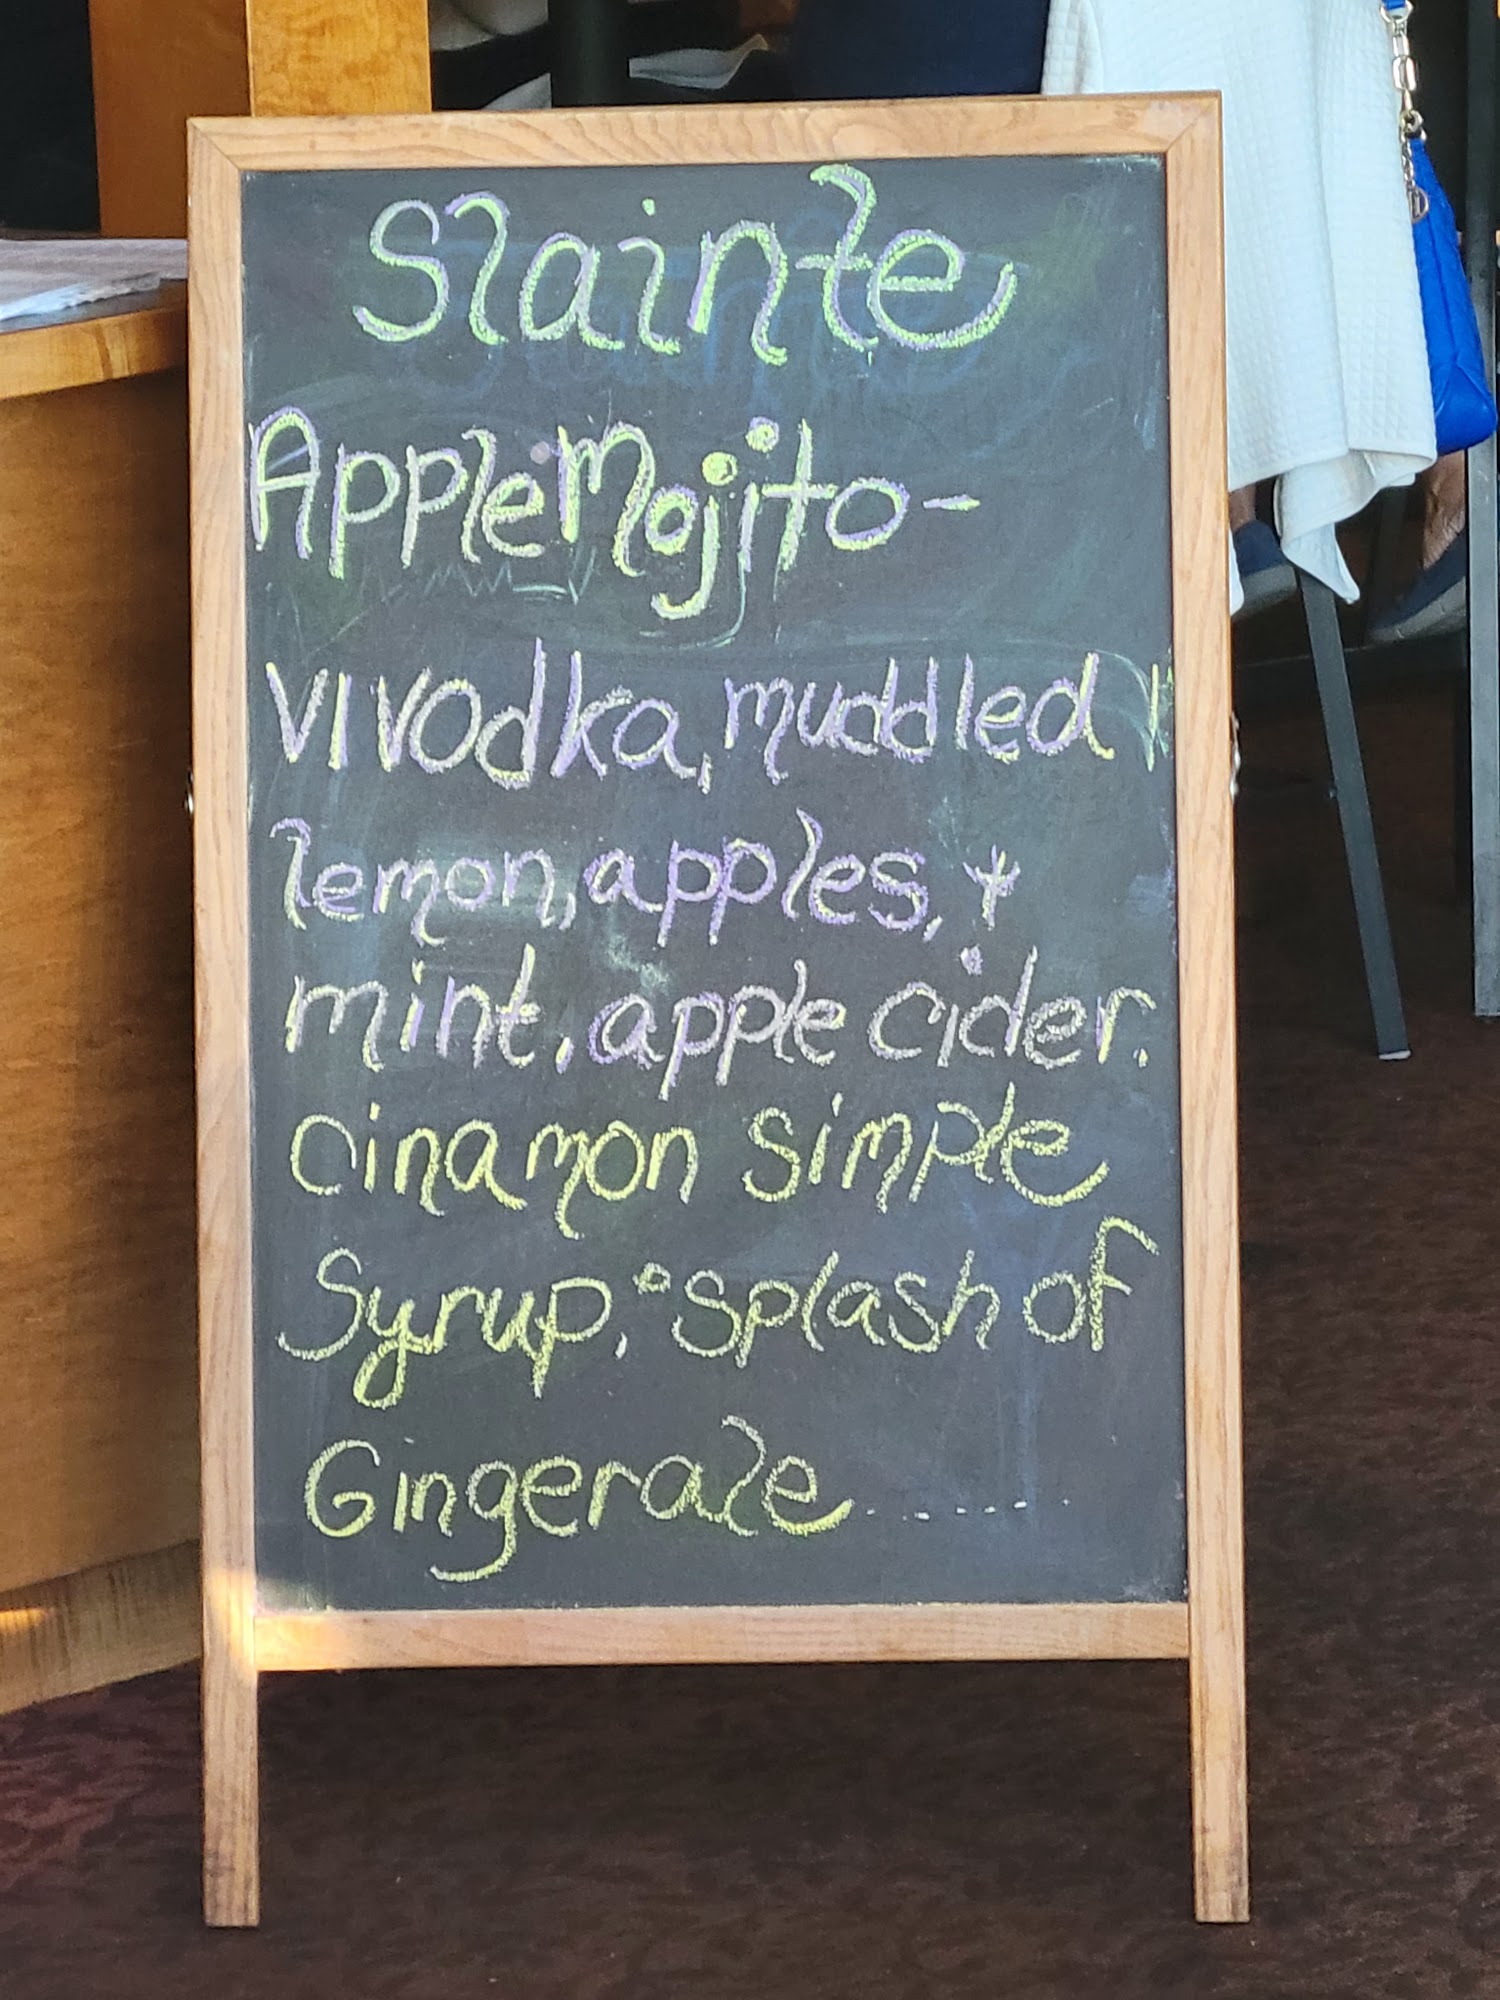 Slainte
Apple Mojito-
VI Vodka, muddled
lemon, apples, +
mint, apple cider.
cinamon simple
Syrup, splash of
Gingerale.......